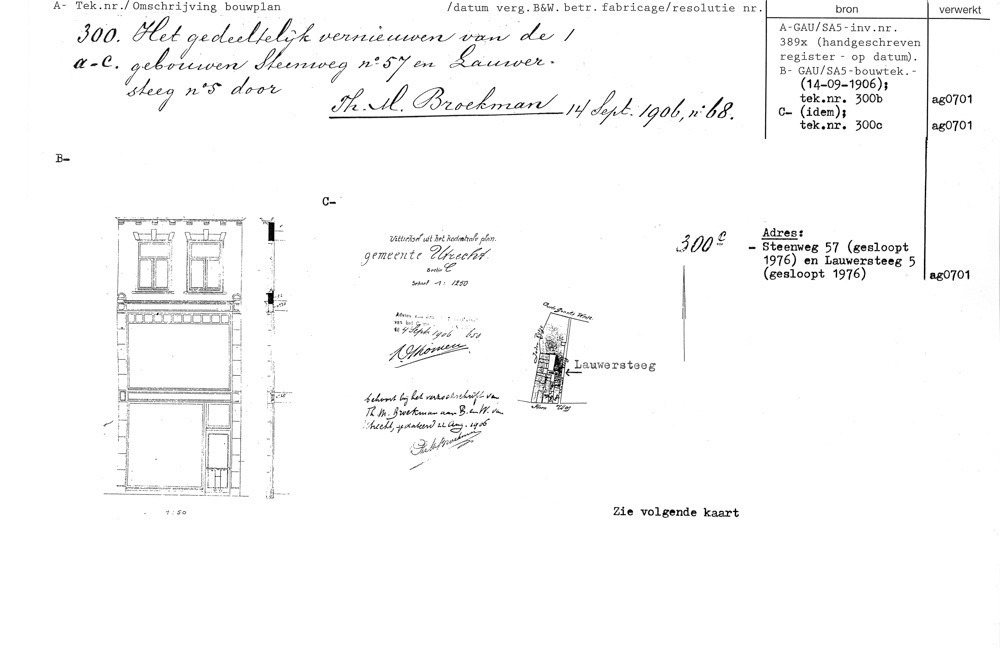 A- Tek.nr./Omschrijving bouwplan /datum verg.B&W. betr. fabricage/resolutie nr. bron verwerkt
300. Het gedeeltelijk vernieuwen van de
a-c. gebouwen Steenweg no 57 en Lauwer-
steeg no 5 door
Th. M. Broekman 14 Sept. 1906, no 68.
A-GAU/SA5-inv.nr.
389x (handgeschreven
register - op datum).
B- GAU/SA5-bouwtek.-
(14-09-1906);
tek.nr. 300b ag0701
C- (idem);
tek.nr. 300c ag0701
B-
C-
Uittreksel uit het kadastrale plan.
gemeente Utrecht.
Sectie C
Schaal 1: 1250
300 c
Adres:
- Steenweg 57 (gesloopt
1976) en Lauwersteeg 5
(gesloopt 1976) ag0701
4 Sept. 1906 650
Lauwersteeg
behoort bij het verzoekschrift van
Th. M. Broekman aan B. en W. van
Utrecht, gedateerd 22 Aug. 1906
1:50
Zie volgende kaart